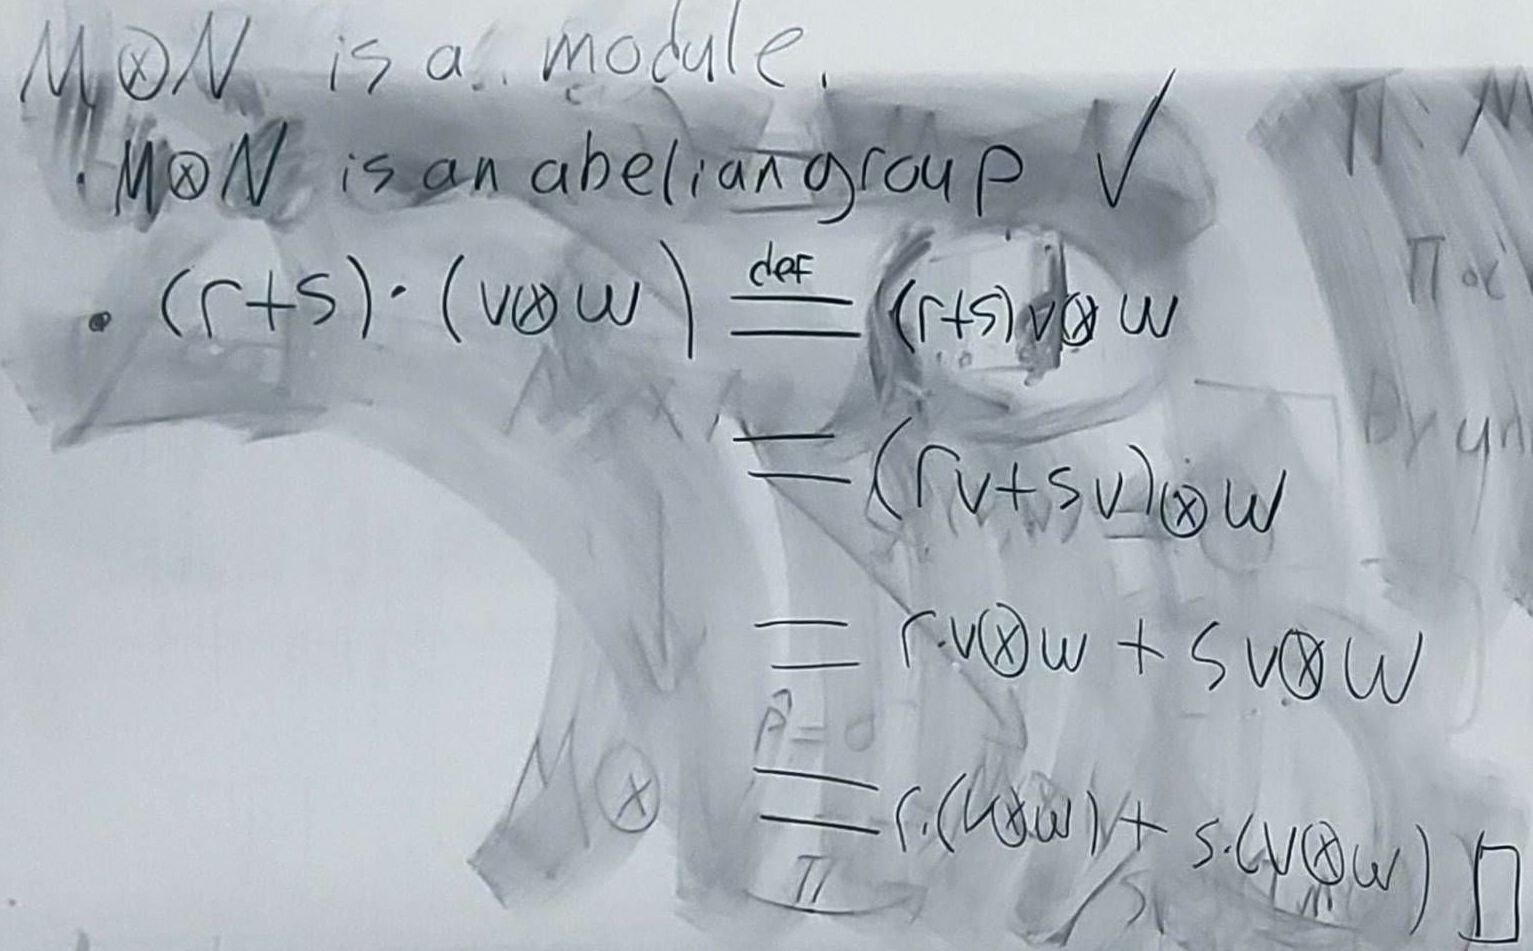 M⊗N is a module.
· M⊗N is an abelian group ✓
· (r+s)·(v⊗w) ≝ (r+s)v⊗w
= (rv+sv)⊗w
= r·v⊗w + sv⊗w
= r·(v⊗w) + s·(v⊗w) □